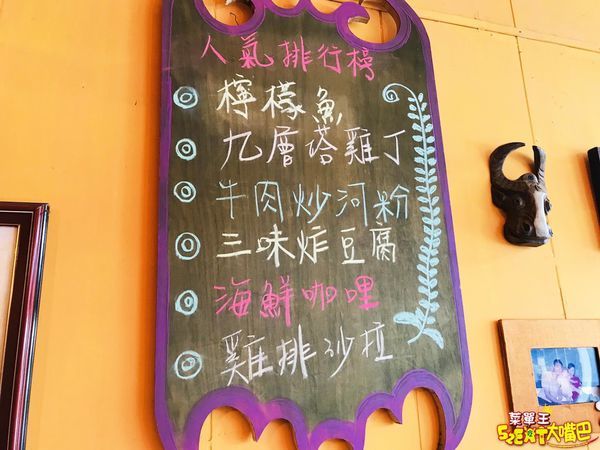 人氣排行榜
檸檬魚
九層塔雞丁
牛肉炒河粉
三味炸豆腐
海鮮咖哩
雞排沙拉
菜單王
528EAT大嘴巴